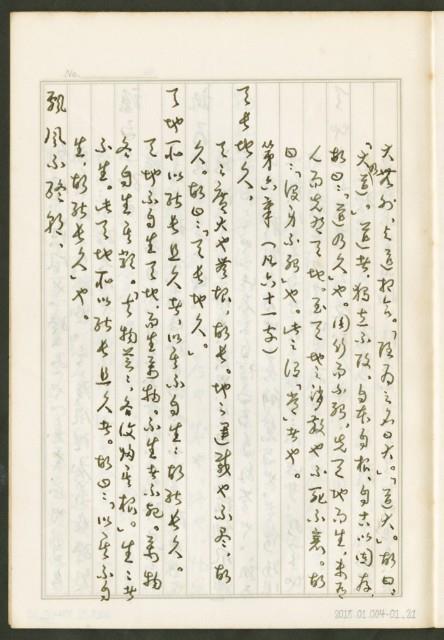 No.
大無外，與道相合。「強為之名曰大。」「道大。」故曰：
「大道。」道者，獨立不改，自本自根，自古以固存，
故曰：「道乃久」也。周行而不殆，先天地而生，未有
人而先有天地，至天地之消散也不死不衰。故
曰：「沒身不殆」也。此之謂「常」者也。
第六章（凡六十一字）
天長地久。
天之廣大也無根，故長。地之運載也不息，故
久。故曰：「天長地久。」
天地所以能長且久者，以其不自生；故能長久。
天地不自生；天地而生萬物。不生者不死。萬物
各自生其類，「夫物芸芸，各復歸其根。」生之者
不生。此天地所以能長且久者。故曰：「以其不自
生，故能長久」也。
飄風不終朝、
2018.01.004-01.21